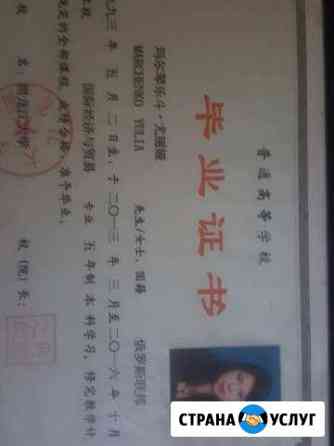 普通高等学校
毕业证书
尤丽娅 先生/女士，国籍 俄罗斯联邦
MARCHENKO YULIA
九三年 五月 二日生，于二〇一三年 三月至二〇一六年 十月
本校 国际经济与贸易 专业 五年制 本科学习，修完教学计
规定的全部课程，成绩合格，准予毕业。
校 名：黑龙江大学 校（院）长：
СТРАНА УСЛУГ